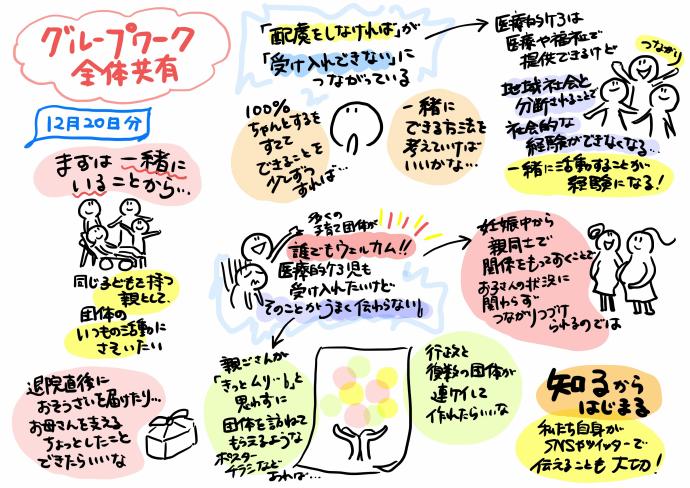 グループワーク
全体共有
12月20日分
まずは一緒に
いることから…
同じ子どもを持つ
親として、
団体の
いつもの活動に
さそいたい
退院直後に
おそうざいを届けたり…
お母さんを支える
ちょっとしたこと
できたらいいな
「配慮をしなければ」が
「受け入れできない」に
つながっている
100%
ちゃんとするを
すてて
できることを
少しずつ
すれば…
一緒に
できる方法を
考えていけば
いいかな…
医療的ケアは
医療や福祉で
提供できるけど
地域社会と
分断されることで
社会的な
経験ができなくなる…
一緒に活動することが
経験になる!
つながり
多くの
子育て団体が
誰でもウェルカム!!
医療的ケア児も
受け入れたいけど
そのことがうまく伝わらない
妊娠中から
親同士で
関係をもっておくことで
お子さんの状況に
関わらず
つながりつづけ
られるのでは
親ごさんが
「きっとムリ…」と
思わずに
団体を訪ねて
もらえるような
ポスター
チラシなど
あれば…
行政と
複数の団体が
連ケイして
作れたらいいな
知るから
はじまる
私たち自身が
SNSやツイッターで
伝えることも大切!